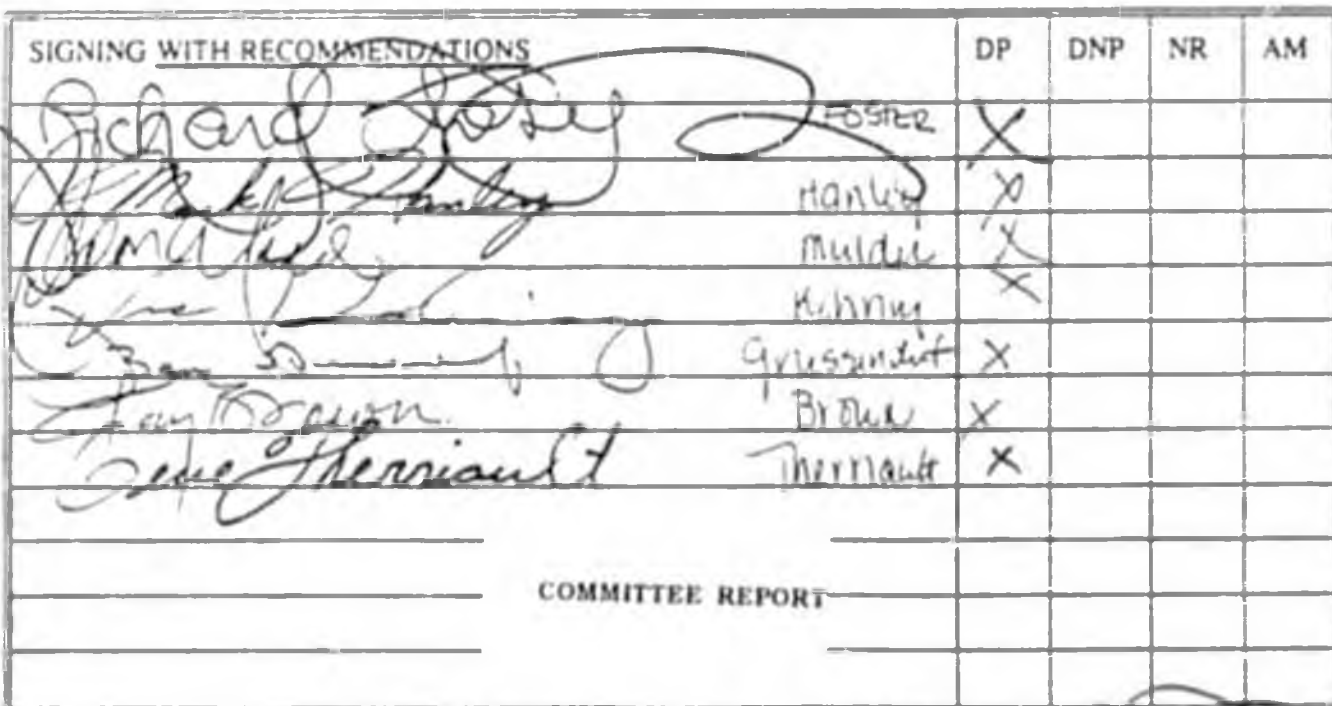 SIGNING WITH RECOMMENDATIONS DP DNP NR AM
Richard Foster FOSTER X
Mark Hanley Hanley X
Mulder X
X
Grussendorf X
Kay Brown Brown X
Gene Therriault Therriault X
COMMITTEE REPORT